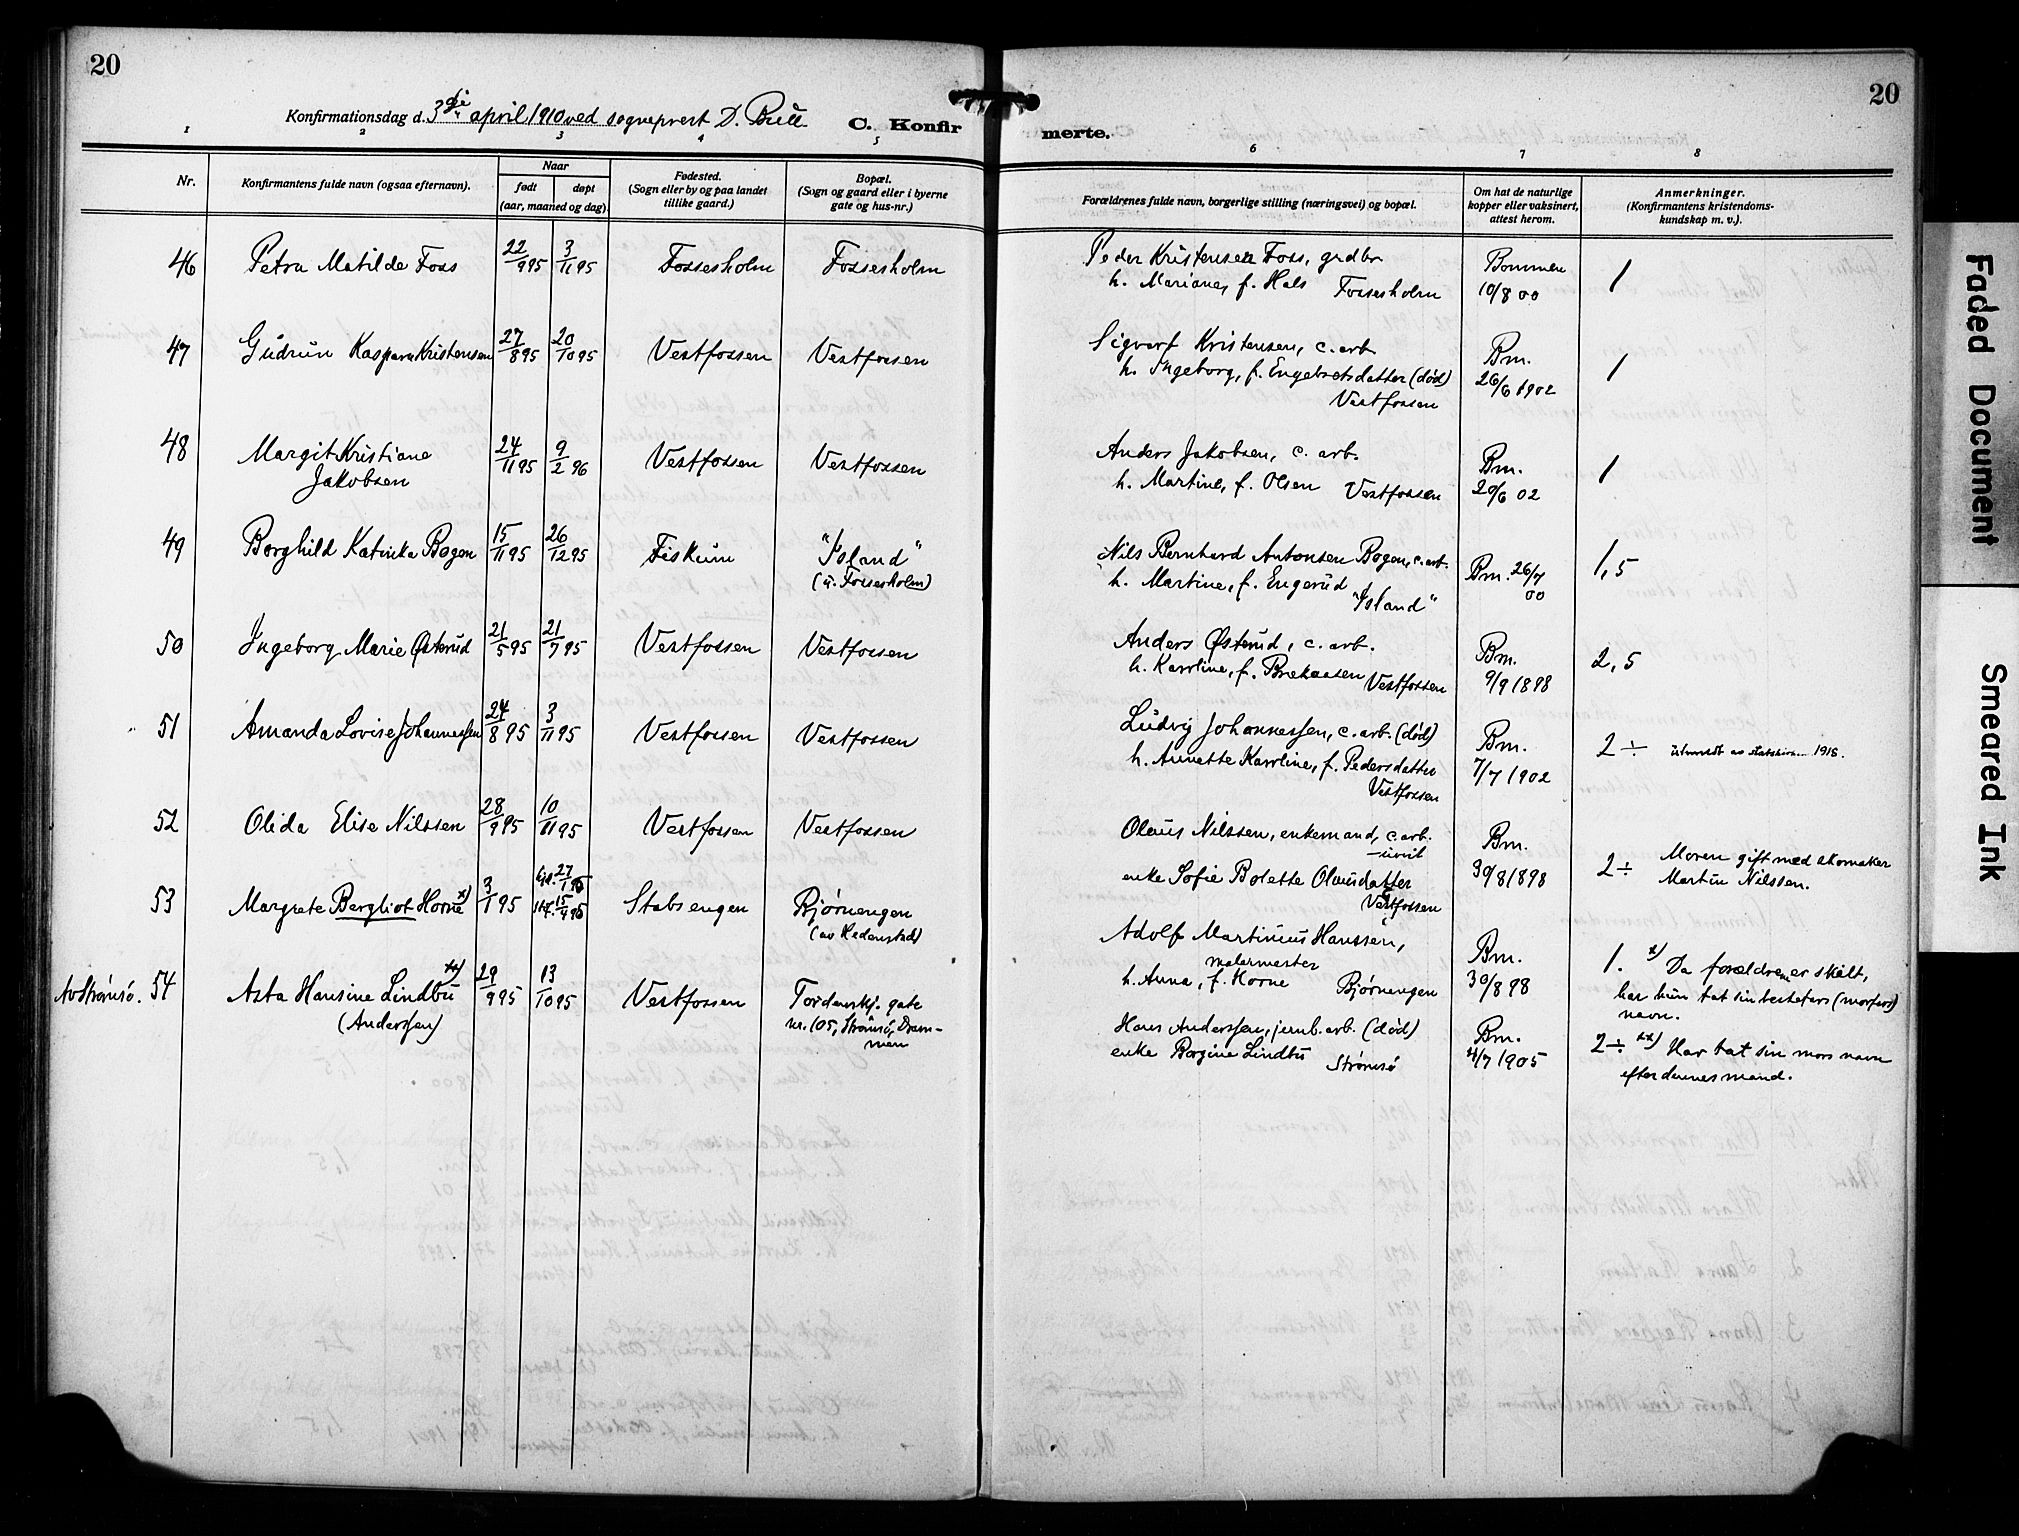 20
20
Konfirmationsdag d. 3die april 1910 ved sogneprest D. Bull
C. Konfirmerte.
1 2 3 4 5 6 7 8
Nr.
Konfirmantens fulde navn (ogsaa efternavn).
Naar
født døpt
(aar, maaned og dag)
Fødested.
(Sogn eller by og paa landet
tillike gaard.)
Bopæl.
(Sogn og gaard eller i byerne
gate og hus-nr.)
Forældrenes fulde navn, borgerlige stilling (næringsvei) og bopæl.
Om hat de naturlige
kopper eller vaksinert,
attest herom.
Anmerkninger.
(Konfirmantens kristendoms-
kundskap m. v.).
46 Petra Matilde Foss 22/9 95 3/11 95 Fossesholm Fossesholm
Peder Kristensen Foss, grdbr
h. Mariane, f. Hals Fossesholm
Bommen
10/8 00
1
47 Gudrun Kaspara Kristensen 27/8 95 20/10 95 Vestfossen Vestfossen
Sigvart Kristensen, c. arb.
h. Ingeborg, f. Engebretsdatter (død)
Vestfossen
Bm.
26/6 1902
1
48 Margit Kristiane
Jakobsen
24/11 95 9/2 96 Vestfossen Vestfossen
Anders Jakobsen, c. arb.
h. Martine, f. Olsen Vestfossen
Bm.
20/6 02
1
49 Borghild Katinka Bogen 15/11 95 26/12 95 Fiskum "Island"
(u. Fossesholm)
Nils Bernhard Antonsen Bogen, c. arb.
h. Martine, f. Engerud
"Island"
Bm. 26/7
00
1,5
50 Ingeborg Marie Østerud 21/5 95 21/7 95 Vestfossen Vestfossen
Anders Østerud, c. arb.
h. Karoline, f. Brekaasen Vestfossen
Bm.
9/9 1898
2,5
51 Amanda Lovise Johannessen 24/8 95 3/11 95 Vestfossen Vestfossen
Ludvig Johannessen, c. arb. (død)
h. Annette Karoline, f. Pedersdatter
Vestfossen
Bm.
7/7 1902
2 ÷ utmeldt av statskirken 1918.
52 Olida Elise Nilssen 28/9 95 10/11 95 Vestfossen Vestfossen
Olaus Nilssen, enkemand, c. arb.
– uvit
enke Sofie Bolette Olausdatter
Vestfossen
Bm.
30/8 1898
2 ÷ Moren gift med skomaker
Martin Nilssen.
53 Margrete Bergliot Horne x) 3/1 95 hjd. 27/1 95 Stabsengen Bjørnengen
(av Hedenstad)
Adolf Martinius Hanssen,
malermester
h. Anna, f. Horne Bjørnengen
Bm.
30/8 98
1. x) Da forældrene er skilt,
har hun tat sin bestefars (morfars)
navn.
Av Strømsø. 54 Asta Hansine Lindbu xx)
(Anderssen)
29/9 95 13/10 95 Vestfossen Tordenskj. gate
nr. 105, Strømsø, Dram-
men
Hans Anderssen, jernb. arb. (død)
enke Borgine Lindbu Strømsø
Bm.
4/7 1905
2 ÷ xx) Har tat sin mors navn
efter dennes mand.
Faded Document
Smeared Ink